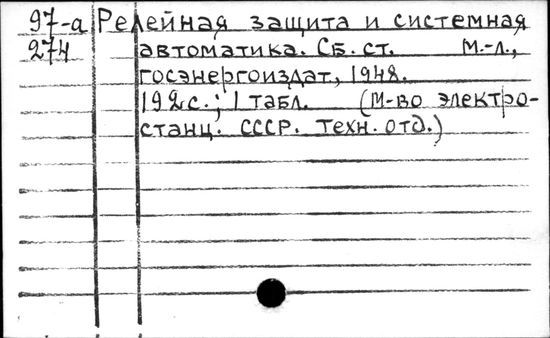 97-а Релейная защита и системная
274 автоматика. Сб. ст. М.-Л.,
Госэнергоиздат, 1948.
192с.; 1 табл. (М-во электро-
станц. СССР. Техн. отд.)